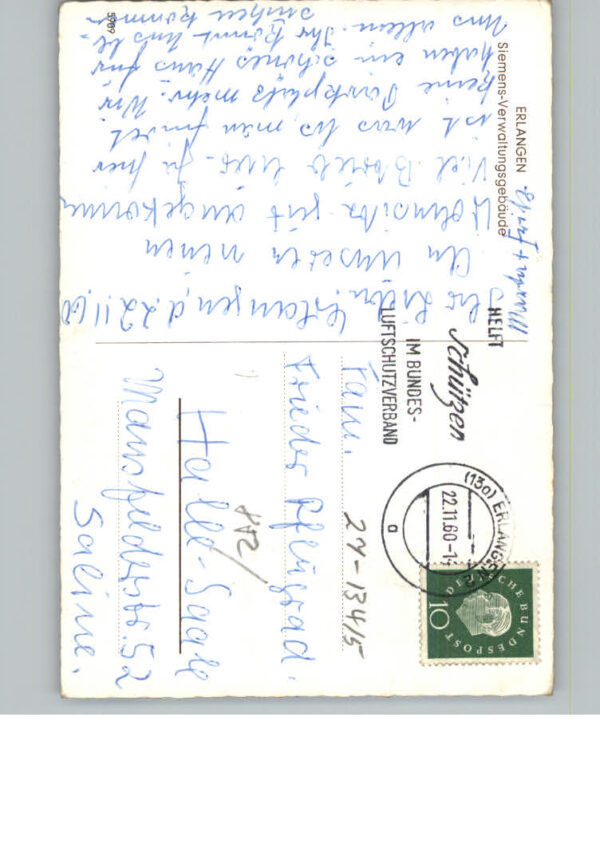 ERLANGEN
Siemens-Verwaltungsgebäude
5909
Ihr Lieben! Erlangen, d. 22.11.60
An unseren neuen
Wohnsitz gut angekommen
Viel Betrieb hier
ist was man findet
keine Parkplätz mehr. Wir
haben ein schönes Haus für
uns allein. Ihr könnt uns be-
suchen kommen
HELFT
schützen
IM BUNDES-
LUFTSCHUTZVERBAND
(13a) ERLANGEN 2
22.11.60-14
a
DEUTSCHE BUNDESPOST
10
Fam.
Frieder Pflugrad.
Halle-Saale
Mansfelderstr. 52
Saline.